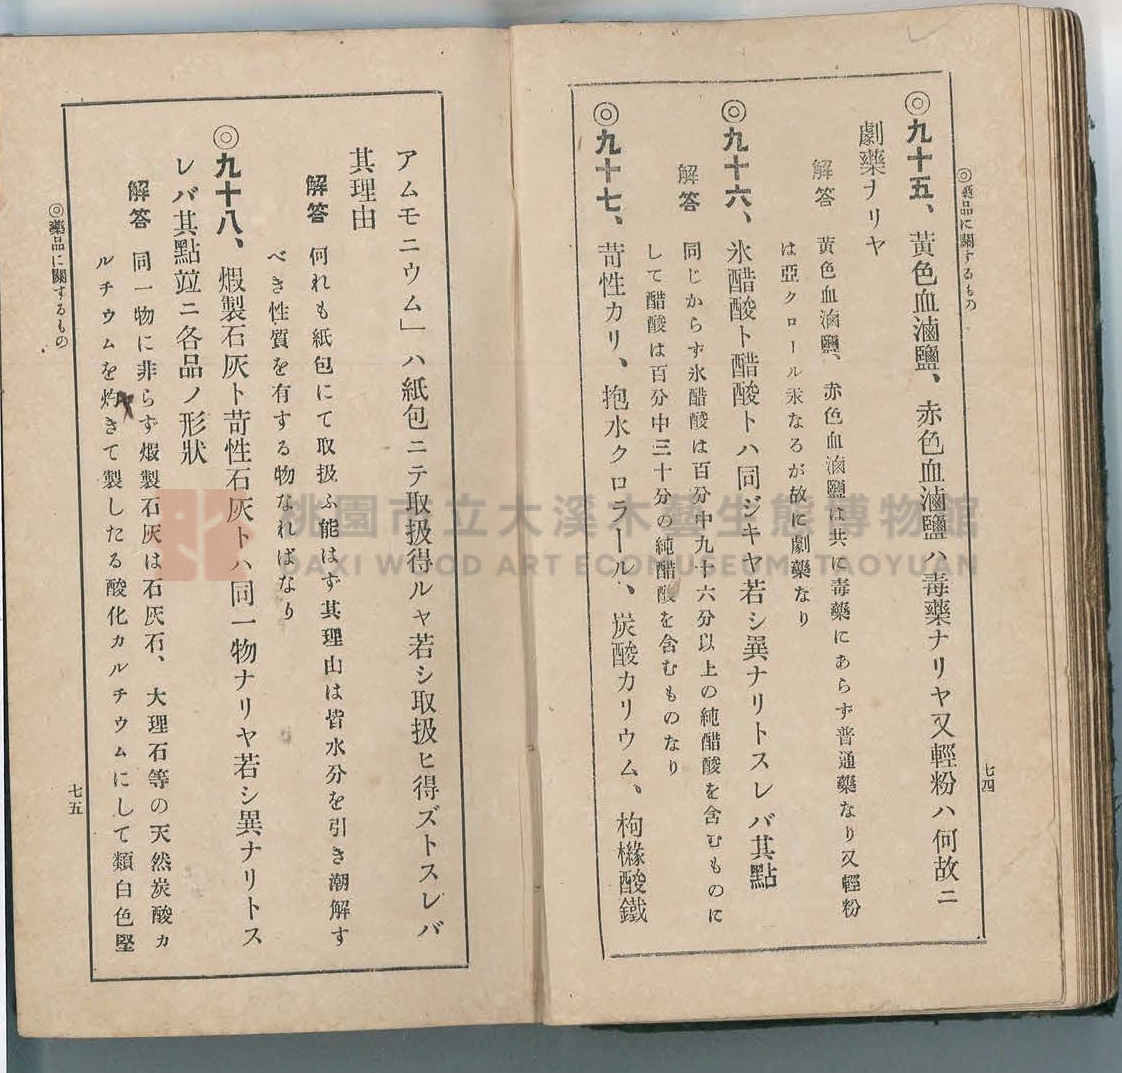 ◎藥品に關するもの
七四
◎九十五、黃色血滷鹽、赤色血滷鹽ハ毒藥ナリヤ又輕粉ハ何故ニ
劇藥ナリヤ
解答 黃色血滷鹽、赤色血滷鹽は共に毒藥にあらず普通藥なり又輕粉
は亞クロール汞なるが故に劇藥なり
◎九十六、氷醋酸ト醋酸トハ同ジキヤ若シ異ナリトスレバ其點
解答 同じからず氷醋酸は百分中九十六分以上の純醋酸を含むものに
して醋酸は百分中三十分の純醋酸を含むものなり
◎九十七、苛性カリ、抱水クロラール、炭酸カリウム、枸櫞酸鐵
アムモニウム」ハ紙包ニテ取扱得ルヤ若シ取扱ヒ得ズトスレバ
其理由
解答 何れも紙包にて取扱ふ能はず其理由は皆水分を引き潮解す
べき性質を有する物なればなり
◎九十八、煆製石灰ト苛性石灰トハ同一物ナリヤ若シ異ナリトス
レバ其點竝ニ各品ノ形狀
解答 同一物に非らず煆製石灰は石灰石、大理石等の天然炭酸カ
ルチウムを灼きて製したる酸化カルチウムにして類白色堅
◎藥品に關するもの
七五
桃園市立大溪木藝生態博物館
DAXI WOOD ART ECOMUSEUM, TAOYUAN